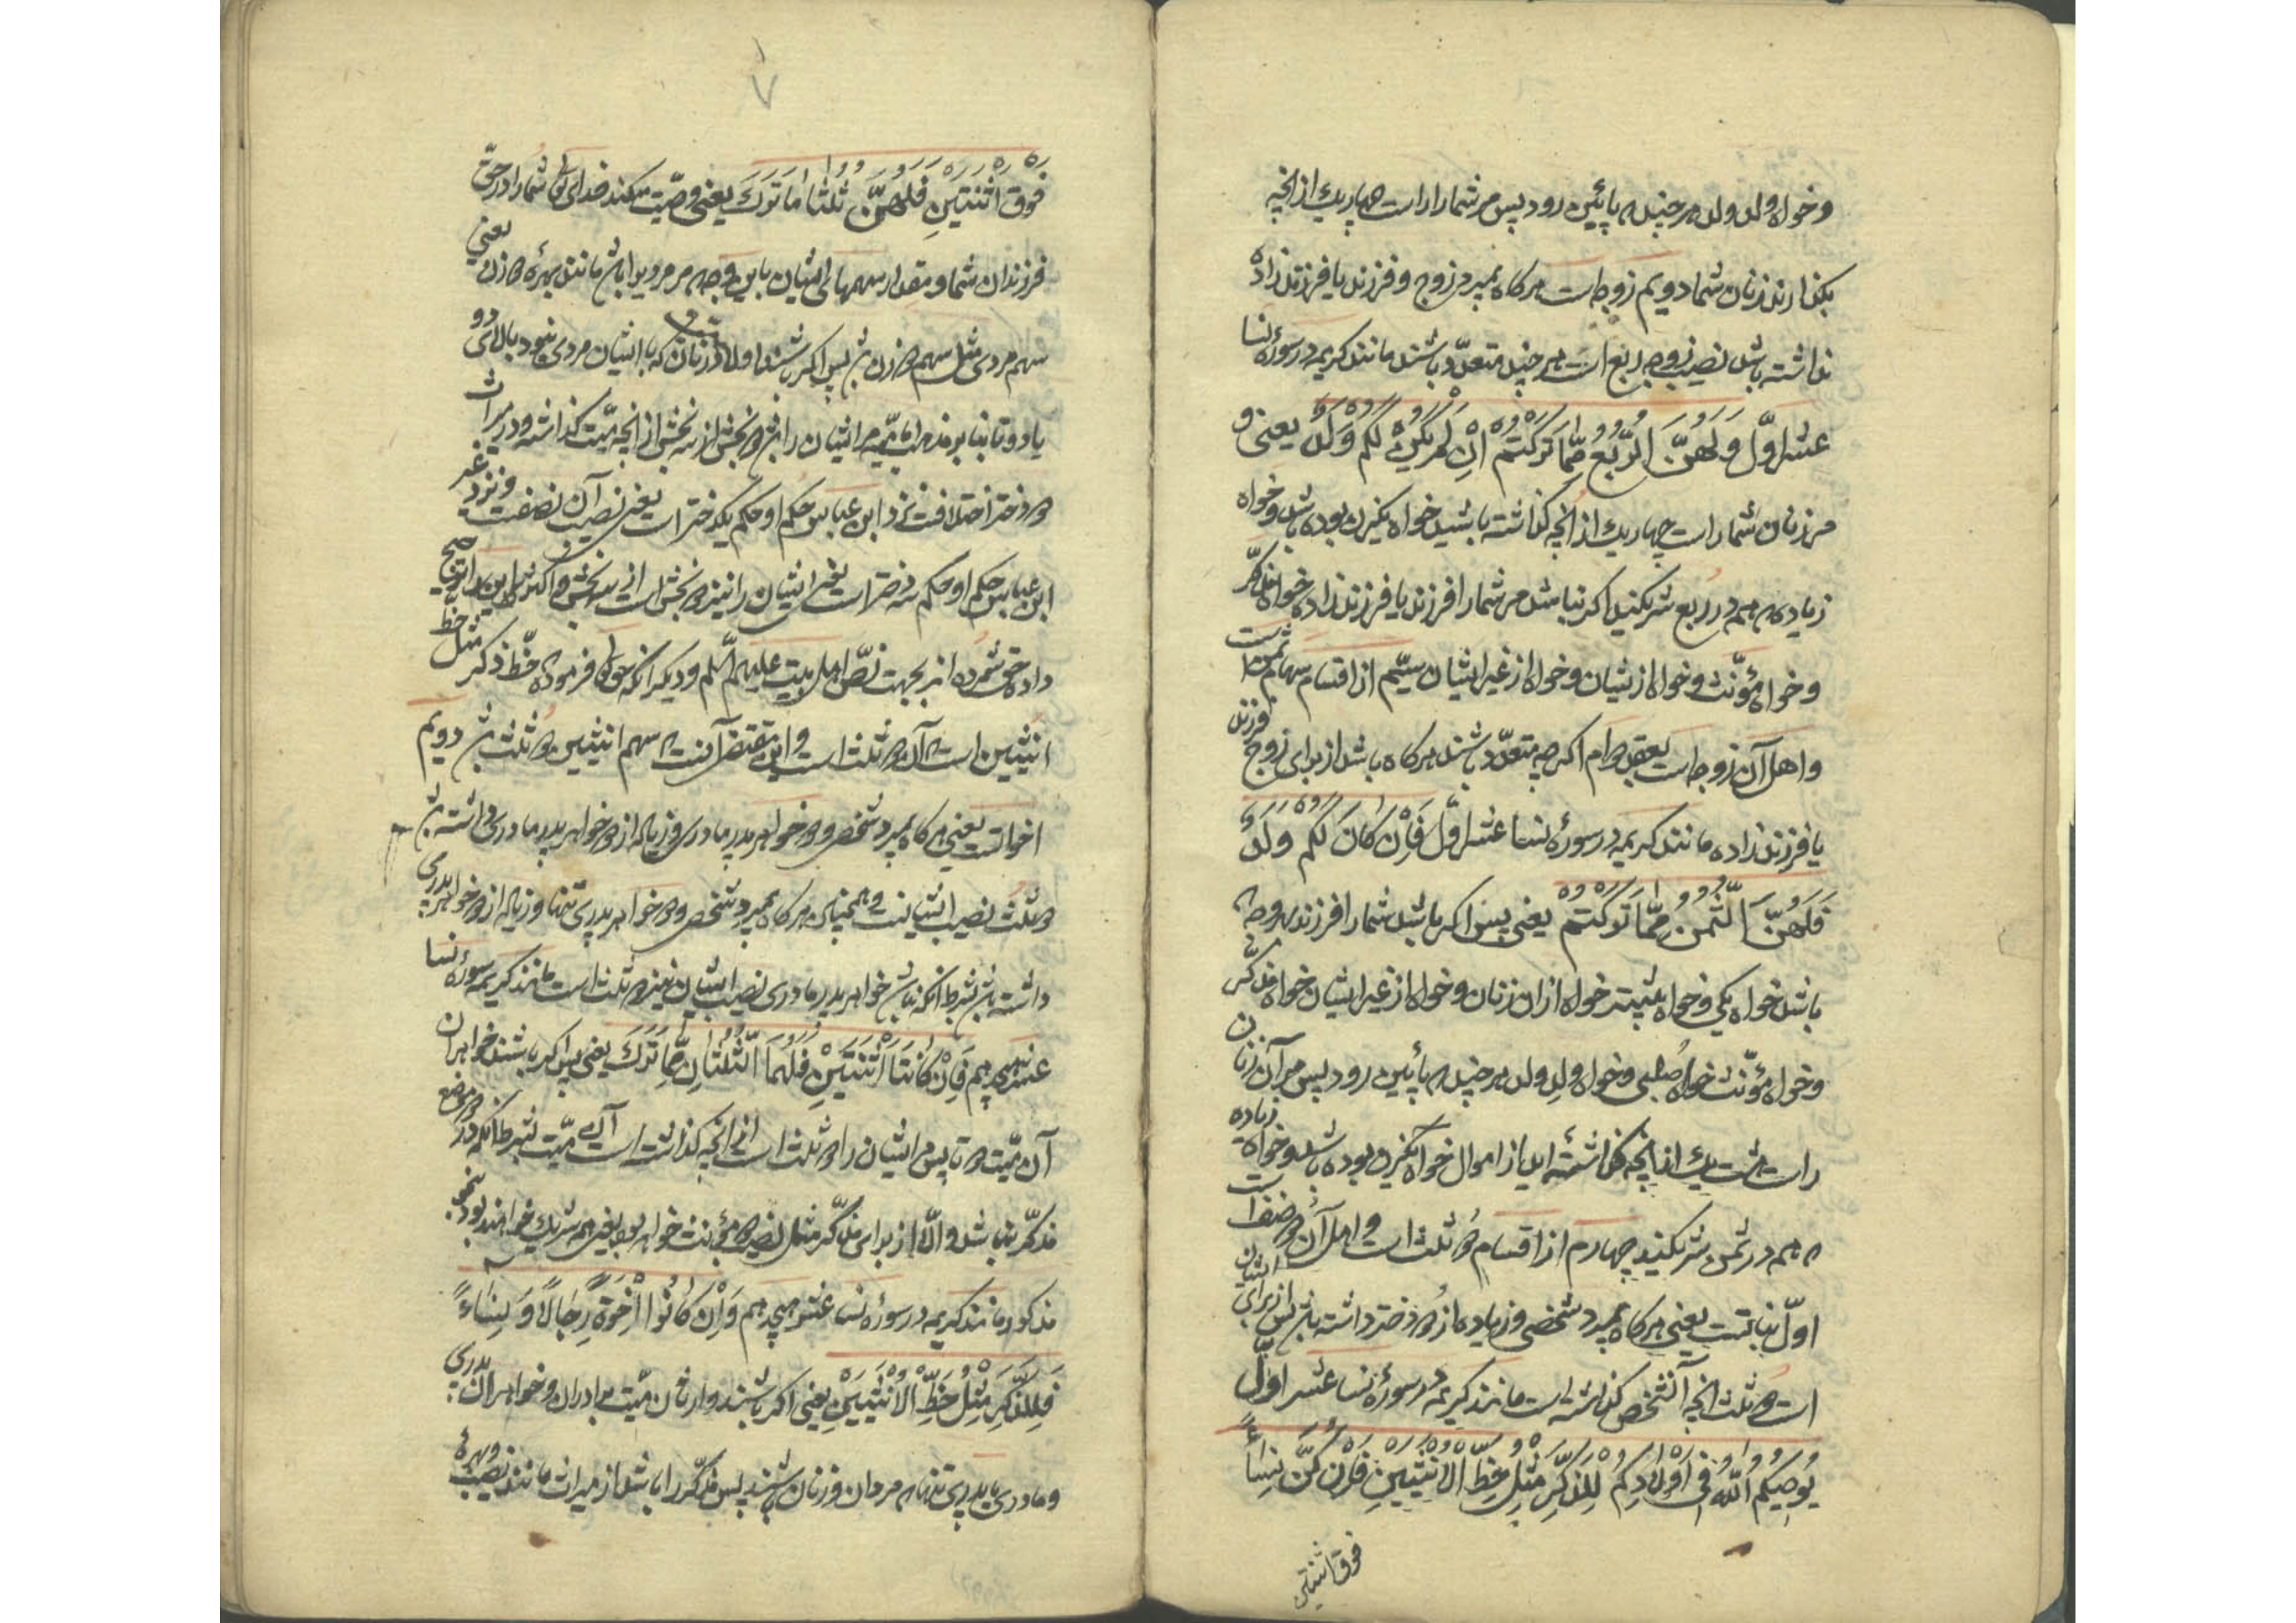 وخواه ولد ولد هر چند که پائین رود پس مر شما را است چهاریك از انچه
بکذارند زنان شما دویم زوجه است هرکاه بمیرد زوج و فرزند یا فرزند زاده
نداشته باشد نصیب زوجه ربع است هر چند متعدّد باشند مانند کریمه در سورهٔ نسا
عشر اوّل وَلَهُنَّ الرُّبُعُ مِمَّا تَرَكْتُمْ اِنْ لَمْ يَكُنْ لَكُمْ وَلَدٌ یعنی و
مر زنان شما راست چهاریك از انچه کذاشته باشید خواه یکزن بوده باشد و خواه
زیاده که هم در ربع شریکند اکر نباشد مر شما را فرزند یا فرزند زاده خواه مذکّر
و خواه مؤنّث و خواه از ایشان و خواه از غیر ایشان سیّم از اقسام سهام ثمن است
و اهل آن زوجه است بعقد دوام اکرچه متعدّد باشند هرکاه باشد از برای زوج فرزند
یا فرزند زاده مانند کریمه در سورهٔ نسا عشر اوّل فَاِنْ كَانَ لَكُمْ وَلَدٌ
فَلَهُنَّ الثُّمُنُ مِمَّا تَرَكْتُمْ یعنی پس اکر باشد شما را فرزند بهر وجه که
باشد خواه یکی و خواه بیشتر خواه از ان زنان و خواه از غیر ایشان خواه مذکّر
و خواه مؤنّث خواه صُلبی و خواه ولدِ ولد هر چند که پائین رود پس مر آن زنان
راست هشت یك از انچه کذاشته اید از اموال خواه یکزن بوده باشد و خواه زیاده
که هم در ثمن شریکند چهارم از اقسام دو ثلث است و اهل آن دو صنف است
اوّل بناتست یعنی هرکاه بمیرد شخصی و زیاده از دو دختر داشته باشد پس از برای ایشان
است دو ثلث انچه آنشخص کذاشته است مانند کریمه در سورهٔ نسا عشر اوّل
يُوصِيكُمُ اللّٰهُ فِي اَوْلَادِكُمْ لِلذَّكَرِ مِثْلُ حَظِّ الْاُنْثَيَيْنِ فَاِنْ كُنَّ نِسَاءً
فوق اثنتین
٧
فَوْقَ اثْنَتَيْنِ فَلَهُنَّ ثُلُثَا مَا تَرَكَ یعنی وصیّت میکند خدای تعالی شما را در حقّ
فرزندان شما و مقدار سهمهای ایشان باین وجه که مر مرد را باشد مانند بهرهٔ دو زن یعنی
سهم مردی مثل سهم دو زن باشد پس اکر باشند اولاد میّت زنان که با ایشان مردی نبود بالای دو
یا دو تا بنا بر مذهب امامیّه مر ایشان را باشد دو بخش از سه بخش از انچه میّت کذاشته و در میراث
دو دختر اختلافست نزد ابن عباس حکم او حکم یکدختر است یعنی نصیب آن نصفست و نزد غیر
ابن عباس حکم او حکم سه دختر است یعنی ایشان را نیز دو بخش است از سه بخش و اکثر علما این را ترجیح
داده حق شمرده اند بجهت نصّ اهل بیت علیهم السّلم و دیکر انکه حق تعالی فرموده حظّ ذکر مثل حظ
انثیین است که آن دو ثلث است و این مقتضی آنست که سهم انثیین دو ثلث باشد دویم
اخواتست یعنی هرکاه بمیرد شخصی و دو خواهر پدر مادری و زیاده از دو خواهر پدر مادری داشته باشد
دو ثلث نصیب ایشانست و همچنین هرکاه بمیرد شخصی و دو خواهر پدری تنها و زیاده از دو خواهر پدری
داشته باشد بشرط انکه نباشد خواهر پدر مادری نصیب ایشان نیز دو ثلث است مانند کریمه سورهٔ نسا
عشر هیجدهم فَاِنْ كَانَتَا اثْنَتَيْنِ فَلَهُمَا الثُّلُثَانِ مِمَّا تَرَكَ یعنی پس اکر باشند خواهران
آن میّت دو تا پس مر ایشان را دو ثلث است از انچه کذاشته است آن میّت بشرط انکه در دو موضع
مذکّر نباشد و الّا از برای مذکّر مثل نصیب دو مؤنث خواهد بود یعنی هم شریك خواهند بود بنحو
مذکور مانند کریمه در سورهٔ نسا عشر هیجدهم وَاِنْ كَانُوا اِخْوَةً رِجَالًا وَ نِسَاءً
فَلِلذَّكَرِ مِثْلُ حَظِّ الْاُنْثَيَيْنِ یعنی اکر باشند وارثان میّت برادران و خواهران پدری
و مادری یا پدری تنها که مردان و زنان باشند پس مذکّر را باشد از میراث مانند نصیب و بهرهٔ